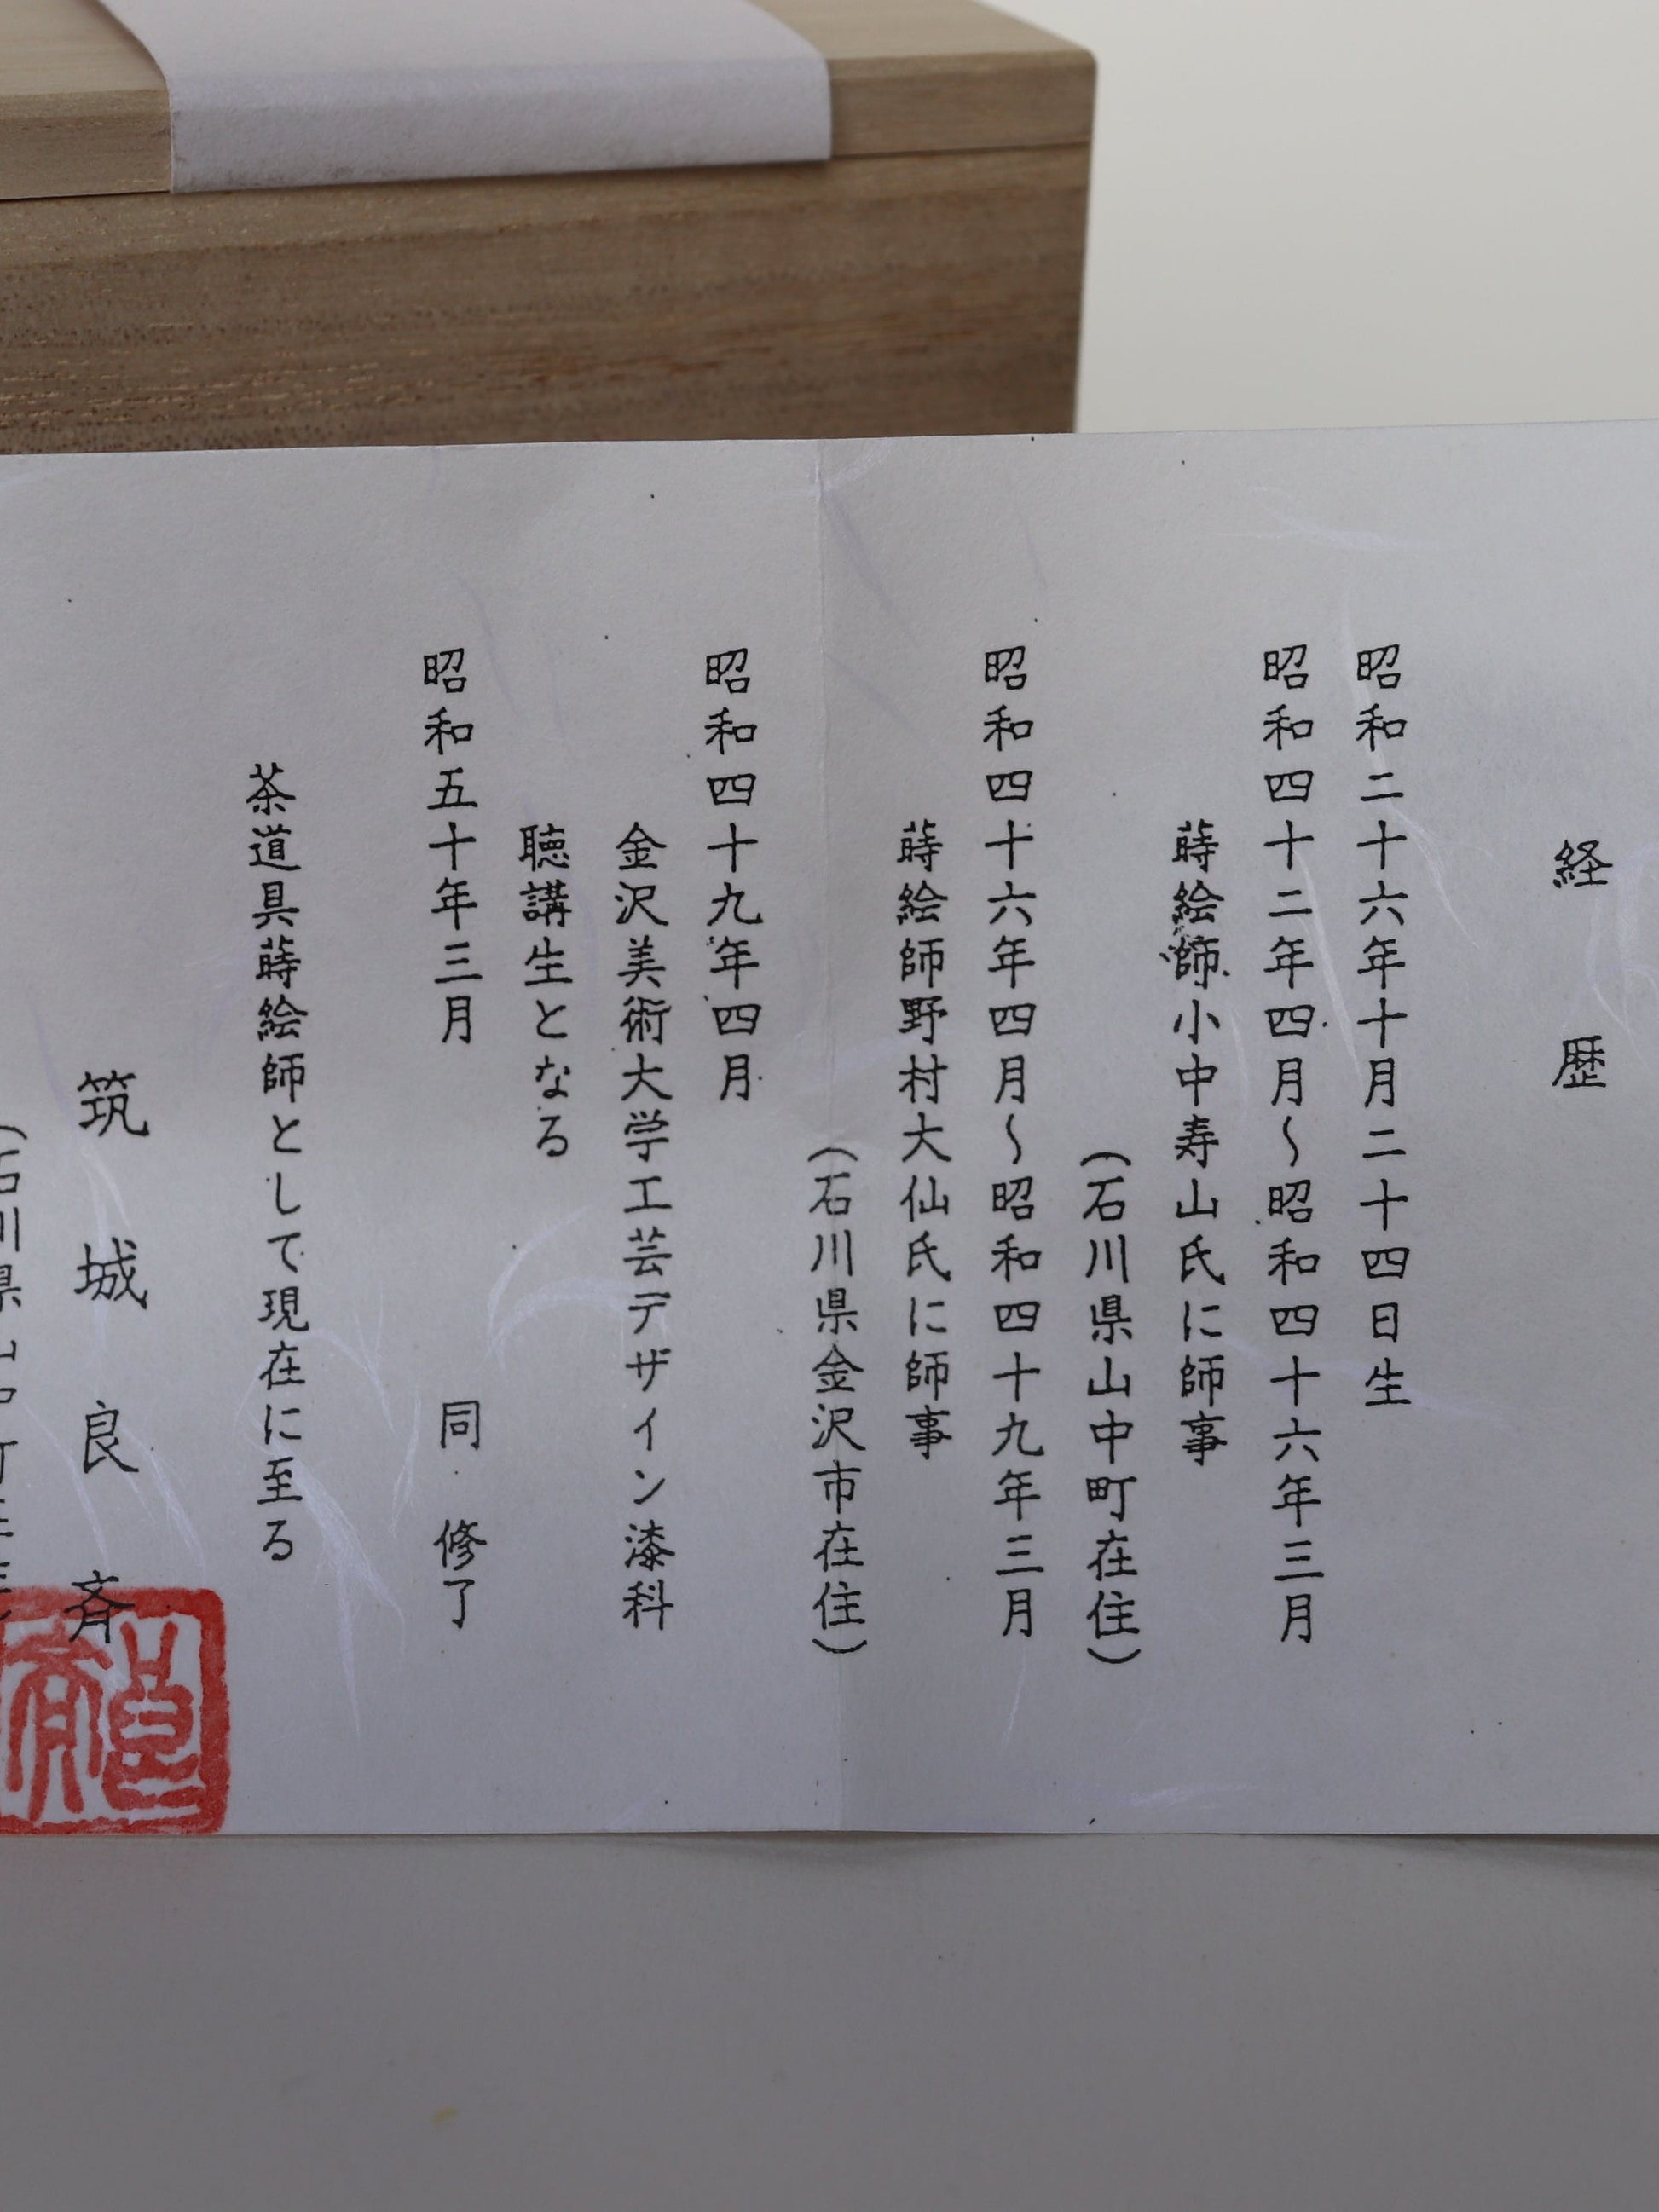 経歴
昭和二十六年十月二十四日生
昭和四十二年四月～昭和四十六年三月
蒔絵師小中寿山氏に師事
(石川県山中町在住)
昭和四十六年四月～昭和四十九年三月
蒔絵師野村大仙氏に師事
(石川県金沢市在住)
昭和四十九年四月
金沢美術大学工芸デザイン漆科
聴講生となる
昭和五十年三月 同 修了
茶道具蒔絵師として現在に至る
筑城良斉